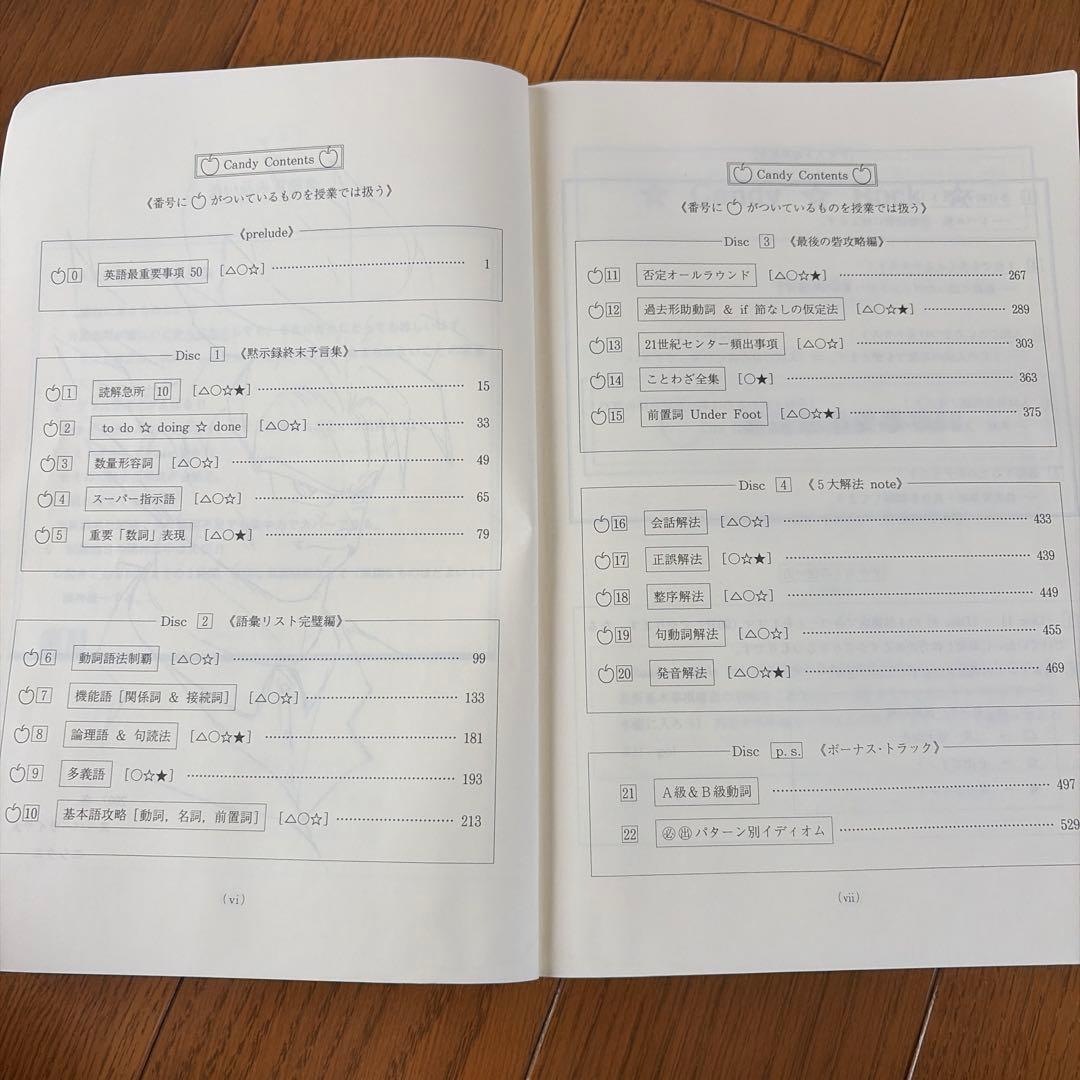 Candy Contents
《番号に がついているものを授業では扱う》
《prelude》
0 英語最重要事項 50 [△○☆] 1
Disc 1 《黙示録終末予言集》
1 読解急所 10 [△○☆★] 15
2 to do ☆ doing ☆ done [△○☆] 33
3 数量形容詞 [△○☆] 49
4 スーパー指示語 [△○☆] 65
5 重要「数詞」表現 [△○★] 79
Disc 2 《語彙リスト完璧編》
6 動詞語法制覇 [△○☆] 99
7 機能語［関係詞 & 接続詞］ [△○☆] 133
8 論理語 & 句読法 [△○☆★] 181
9 多義語 [○☆★] 193
10 基本語攻略［動詞，名詞，前置詞］ [△○☆] 213
(vi)
Candy Contents
《番号に がついているものを授業では扱う》
Disc 3 《最後の砦攻略編》
11 否定オールラウンド [△○☆★] 267
12 過去形助動詞 & if 節なしの仮定法 [△○☆★] 289
13 21世紀センター頻出事項 [△○☆] 303
14 ことわざ全集 [○★] 363
15 前置詞 Under Foot [△○☆★] 375
Disc 4 《５大解法 note》
16 会話解法 [△○☆] 433
17 正誤解法 [○☆★] 439
18 整序解法 [△○☆] 449
19 句動詞解法 [△○☆] 455
20 発音解法 [△○☆★] 469
Disc p.s. 《ボーナス・トラック》
21 Ａ級＆Ｂ級動詞 497
22 ㊙出パターン別イディオム 529
(vii)